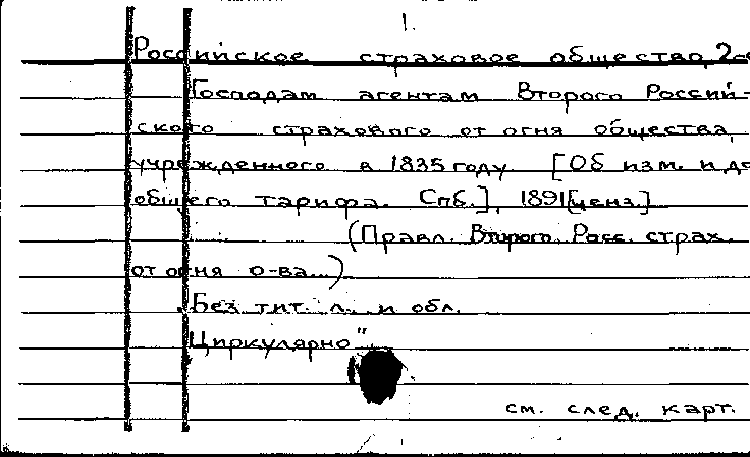 1.
Российское страховое общество, 2-о
Господам агентам Второго Россий-
ского страхового от огня общества,
учрежденного в 1835 году. [Об изм. и до
общего тарифа. Спб.], 1891 [ценз.]
(Правл. Второго Росс. страх.
от огня о-ва...)
Без тит. л. и обл.
Циркулярно"
см. след. карт.